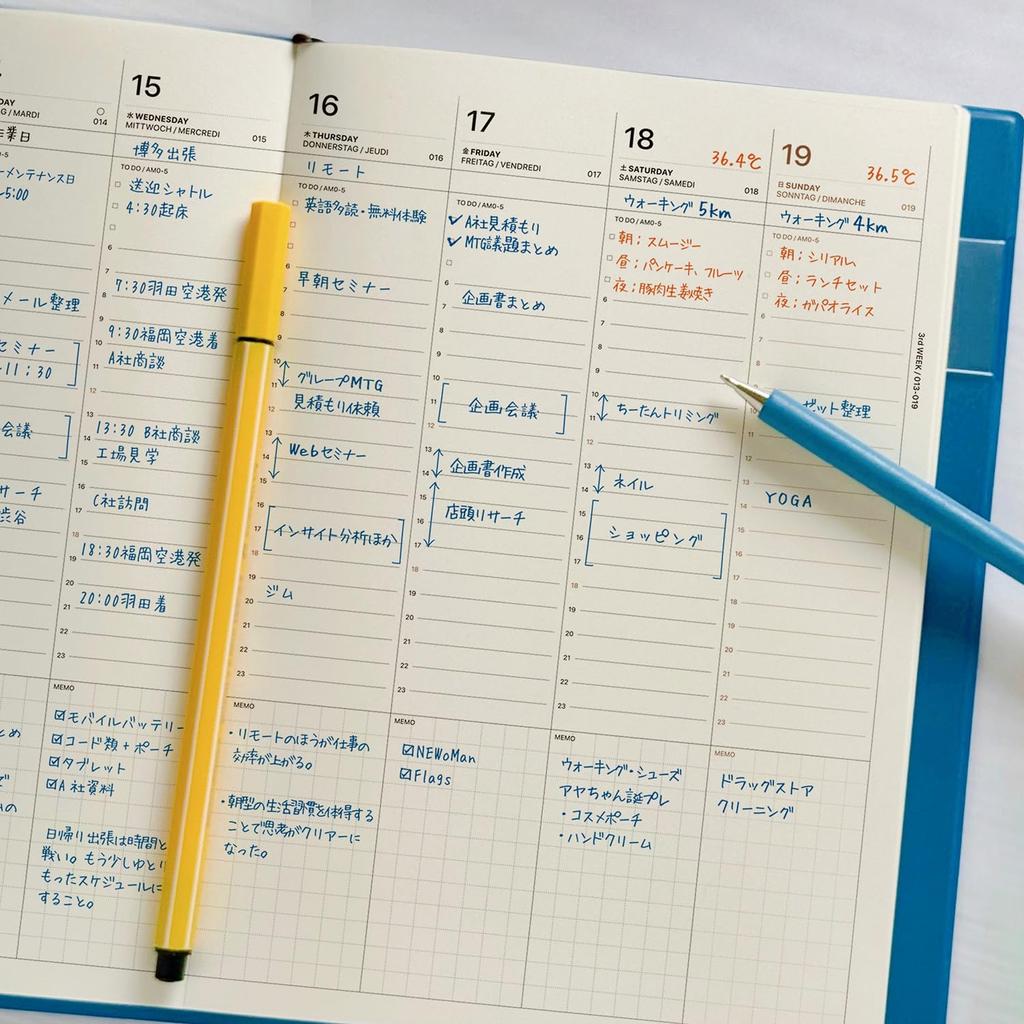 DAY
G / MARDI
014
作業日
0-5
メンテナンス日
5:00
メール整理
セミナー
11:30
会議
サーチ
渋谷
15
水 WEDNESDAY
MITTWOCH / MERCREDI
015
博多出張
TO DO / AM0-5
送迎シャトル
4:30起床
6
7
7:30羽田空港発
8
9
9:30福岡空港着
10
A社商談
11
12
13
13:30 B社商談
14
工場見学
15
16
C社訪問
17
18
18:30福岡空港発
19
20
20:00羽田着
21
22
23
MEMO
モバイルバッテリー
コード類+ポーチ
タブレット
A社資料
日帰り出張は時間と
戦い。もう少しゆとり
もったスケジュールに
すること。
16
木 THURSDAY
DONNERSTAG / JEUDI
016
リモート
TO DO / AM0-5
英語多読・無料体験
6
早朝セミナー
10
グループMTG
11
見積もり依頼
12
13
Webセミナー
14
15
16
インサイト分析ほか
17
18
19
ジム
20
21
22
23
MEMO
・リモートのほうが仕事の
効率が上がる。
・朝型の生活習慣を体得する
ことで思考がクリアーに
なった。
17
金 FRIDAY
FREITAG / VENDREDI
017
TO DO / AM0-5
A社見積もり
MTG議題まとめ
6
企画書まとめ
7
8
9
10
企画会議
11
12
13
企画書作成
14
15
店頭リサーチ
16
17
18
19
20
21
22
23
MEMO
NEWoMan
Flags
18
36.4℃
土 SATURDAY
SAMSTAG / SAMEDI
018
ウォーキング 5km
TO DO / AM0-5
朝;スムージー
昼;パンケーキ、フルーツ
夜;豚肉生姜焼き
6
7
8
9
10
ちーたんトリミング
11
12
13
ネイル
14
15
ショッピング
16
17
18
19
20
21
22
23
MEMO
ウォーキング・シューズ
アヤちゃん誕プレ
・コスメポーチ
・ハンドクリーム
19
36.5℃
日 SUNDAY
SONNTAG / DIMANCHE
019
ウォーキング 4km
TO DO / AM0-5
朝;シリアル
昼;ランチセット
夜;ガパオライス
6
7
8
10
ゼット整理
11
12
13
YOGA
14
15
16
17
18
19
20
21
22
23
MEMO
ドラッグストア
クリーニング
3rd WEEK / 013-019